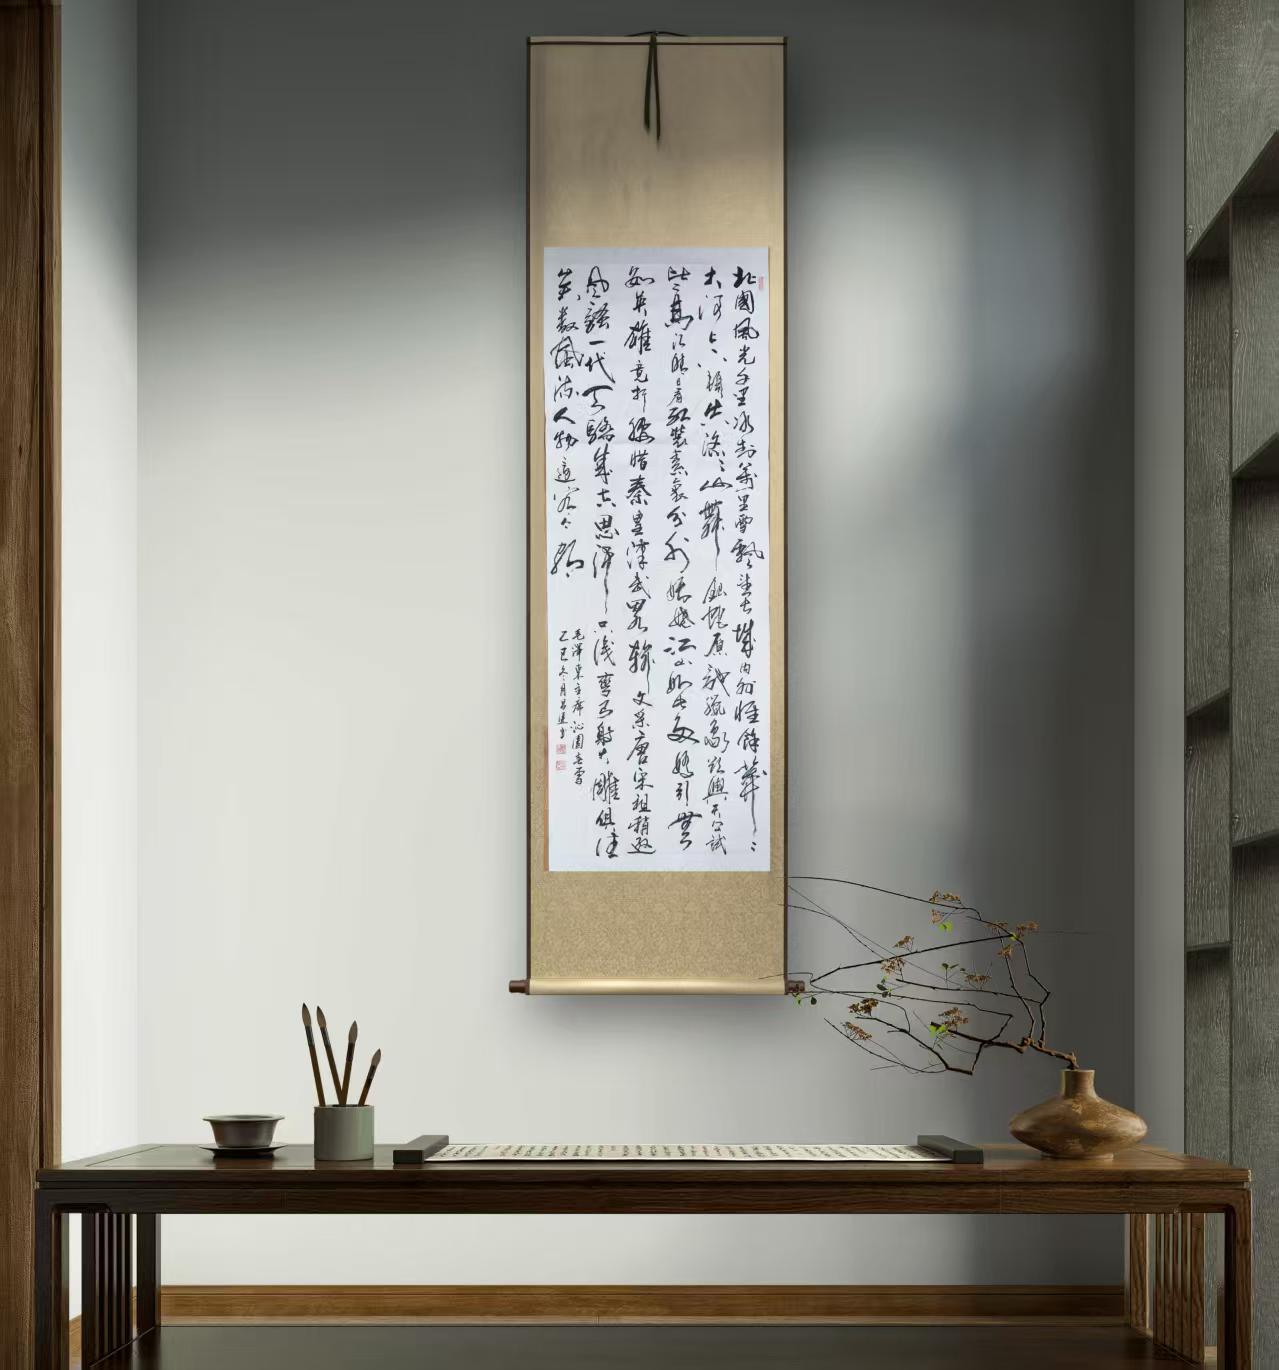 北國風光千里冰封萬里雪飄望長城内外惟餘莽〻
大河上下頓失滔〻山舞銀蛇原馳蠟象欲與天公試
比高須晴日看紅裝素裹分外妖嬈江山如此多嬌引無
數英雄竟折腰惜秦皇漢武略輸文采唐宗宋祖稍遜
風騷一代天驕成吉思汗只識彎弓射大雕俱往
矣數風流人物還看今朝
毛澤東主席沁園春雪
乙巳冬月呂建書